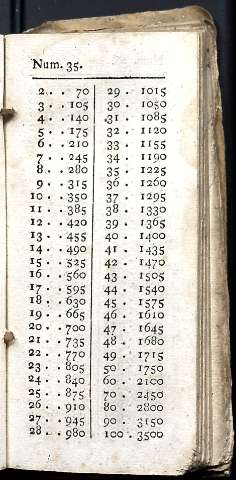 Num. 35.
2 . . 70 29 . 1015
3 . . 105 30 . 1050
4 . . 140 31 . 1085
5 . . 175 32 . 1120
6 . . 210 33 . 1155
7 . . 245 34 . 1190
8 . . 280 35 . 1225
9 . . 315 36 . 1260
10 . . 350 37 . 1295
11 . . 385 38 . 1330
12 . . 420 39 . 1365
13 . . 455 40 . 1400
14 . . 490 41 . 1435
15 . . 525 42 . 1470
16 . . 560 43 . 1505
17 . . 595 44 . 1540
18 . . 630 45 . 1575
19 . . 665 46 . 1610
20 . . 700 47 . 1645
21 . . 735 48 . 1680
22 . . 770 49 . 1715
23 . . 805 50 . 1750
24 . . 840 60 . 2100
25 . . 875 70 . 2450
26 . . 910 80 . 2800
27 . . 945 90 . 3150
28 . . 980 100 . 3500